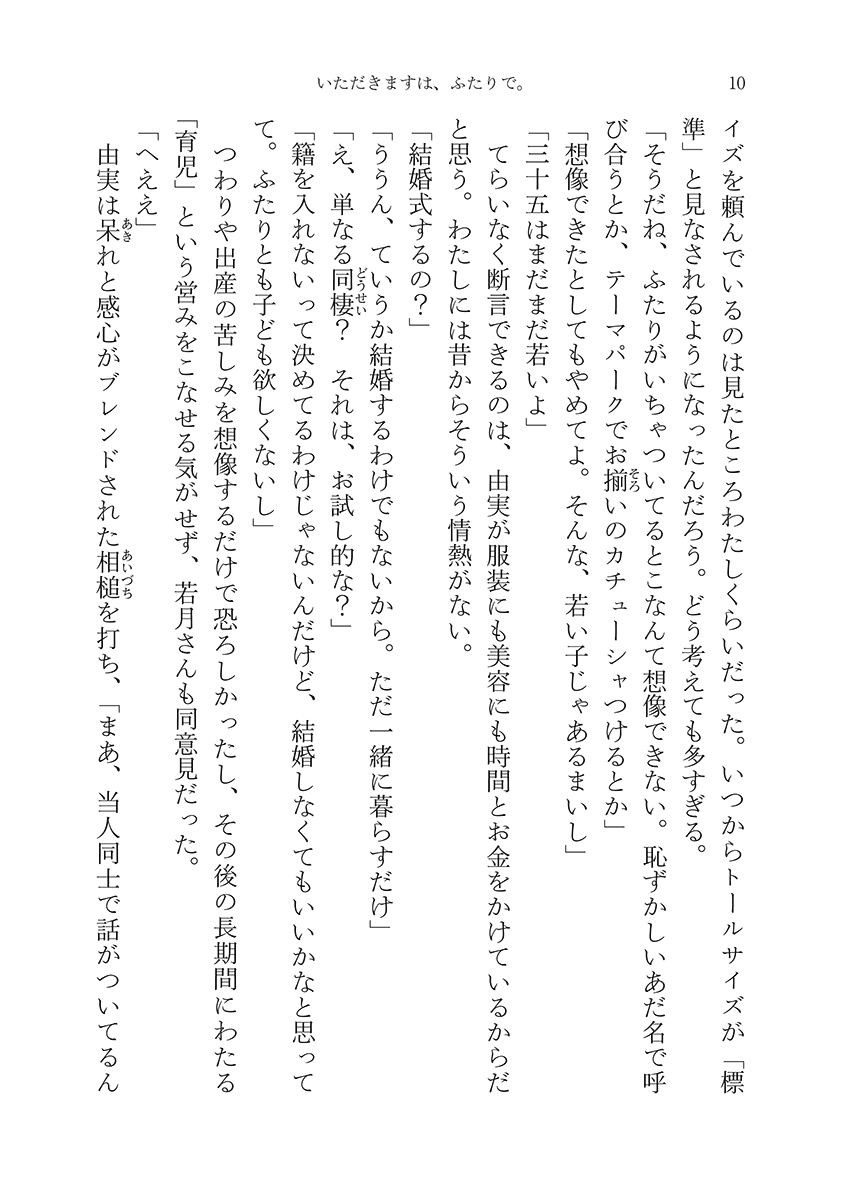 いただきますは、ふたりで。
10
イズを頼んでいるのは見たところわたしくらいだった。いつからトールサイズが「標
準」と見なされるようになったんだろう。どう考えても多すぎる。
「そうだね、ふたりがいちゃついてるとこなんて想像できない。恥ずかしいあだ名で呼
び合うとか、テーマパークでお揃いのカチューシャつけるとか」
「想像できたとしてもやめてよ。そんな、若い子じゃあるまいし」
「三十五はまだまだ若いよ」
てらいなく断言できるのは、由実が服装にも美容にも時間とお金をかけているからだ
と思う。わたしには昔からそういう情熱がない。
「結婚式するの？」
「ううん、ていうか結婚するわけでもないから。ただ一緒に暮らすだけ」
「え、単なる同棲？　それは、お試し的な？」
「籍を入れないって決めてるわけじゃないんだけど、結婚しなくてもいいかなと思って
て。ふたりとも子ども欲しくないし」
つわりや出産の苦しみを想像するだけで恐ろしかったし、その後の長期間にわたる
「育児」という営みをこなせる気がせず、若月さんも同意見だった。
「へええ」
由実は呆れと感心がブレンドされた相槌を打ち、「まあ、当人同士で話がついてるん
そろ
どうせい
あき
あいづち